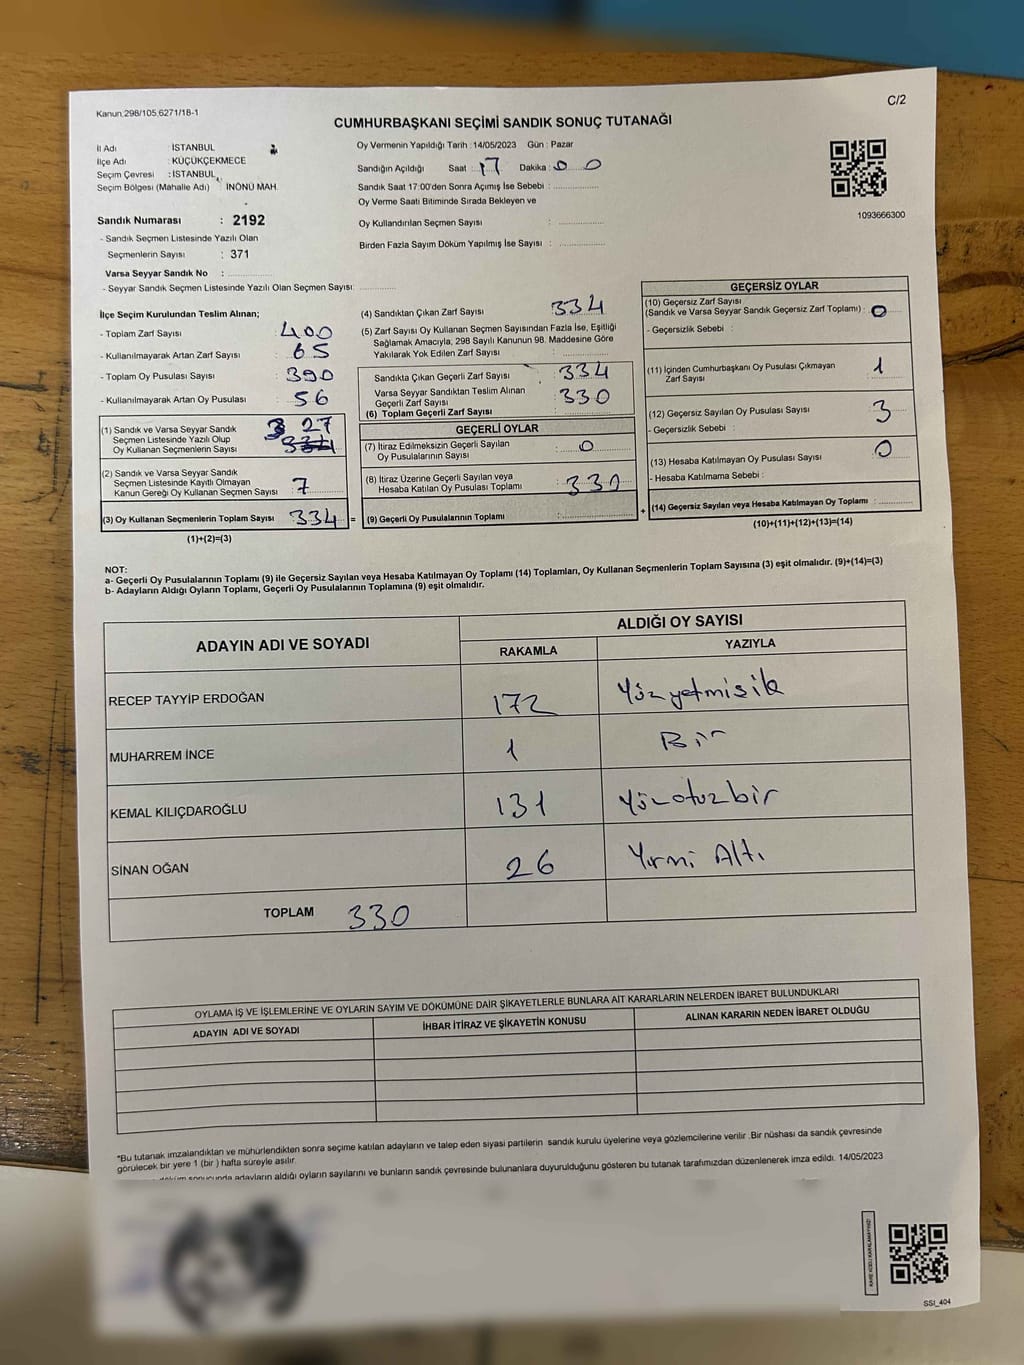 Kanun:298/105,6271/18-1
C/2
CUMHURBAŞKANI SEÇİMİ SANDIK SONUÇ TUTANAĞI
İl Adı : İSTANBUL
İlçe Adı : KÜÇÜKÇEKMECE
Seçim Çevresi : İSTANBUL
Seçim Bölgesi (Mahalle Adı) İNÖNÜ MAH.
Sandık Numarası : 2192
- Sandık Seçmen Listesinde Yazılı Olan
Seçmenlerin Sayısı : 371
Varsa Seyyar Sandık No :
- Seyyar Sandık Seçmen Listesinde Yazılı Olan Seçmen Sayısı:
Oy Vermenin Yapıldığı Tarih :14/05/2023 Gün : Pazar
Sandığın Açıldığı Saat : 17 Dakika : 00
Sandık Saat 17:00'den Sonra Açımış İse Sebebi :
Oy Verme Saati Bitiminde Sırada Bekleyen ve
Oy Kullandırılan Seçmen Sayısı :
Birden Fazla Sayım Döküm Yapılmış İse Sayısı :
1093666300
İlçe Seçim Kurulundan Teslim Alınan;
- Toplam Zarf Sayısı : 400
- Kullanılmayarak Artan Zarf Sayısı : 65
- Toplam Oy Pusulası Sayısı : 390
- Kullanılmayarak Artan Oy Pusulası : 56
(1) Sandık ve Varsa Seyyar Sandık 327
Seçmen Listesinde Yazılı Olup
Oy Kullanan Seçmenlerin Sayısı : 334
(2) Sandık ve Varsa Seyyar Sandık
Seçmen Listesinde Kayıtlı Olmayan
Kanun Gereği Oy Kullanan Seçmen Sayısı : 7
(3) Oy Kullanan Seçmenlerin Toplam Sayısı : 334 =
(1)+(2)=(3)
(4) Sandıktan Çıkan Zarf Sayısı : 334
(5) Zarf Sayısı Oy Kullanan Seçmen Sayısından Fazla İse, Eşitliği
Sağlamak Amacıyla, 298 Sayılı Kanunun 98. Maddesine Göre
Yakılarak Yok Edilen Zarf Sayısı :
Sandıkta Çıkan Geçerli Zarf Sayısı : 334
Varsa Seyyar Sandıktan Teslim Alınan
Geçerli Zarf Sayısı : 330
(6) Toplam Geçerli Zarf Sayısı :
GEÇERLİ OYLAR
(7) İtiraz Edilmeksizin Geçerli Sayılan
Oy Pusulalarının Sayısı : 0
(8) İtiraz Üzerine Geçerli Sayılan veya
Hesaba Katılan Oy Pusulası Toplamı : 330
(9) Geçerli Oy Pusulalarının Toplamı : +
GEÇERSİZ OYLAR
(10) Geçersiz Zarf Sayısı
(Sandık ve Varsa Seyyar Sandık Geçersiz Zarf Toplamı) : 0
- Geçersizlik Sebebi :
(11) İçinden Cumhurbaşkanı Oy Pusulası Çıkmayan
Zarf Sayısı : 1
(12) Geçersiz Sayılan Oy Pusulası Sayısı : 3
- Geçersizlik Sebebi :
(13) Hesaba Katılmayan Oy Pusulası Sayısı : 0
- Hesaba Katılmama Sebebi :
(14) Geçersiz Sayılan veya Hesaba Katılmayan Oy Toplamı :
(10)+(11)+(12)+(13)=(14)
NOT:
a- Geçerli Oy Pusulalarının Toplamı (9) ile Geçersiz Sayılan veya Hesaba Katılmayan Oy Toplamı (14) Toplamları, Oy Kullanan Seçmenlerin Toplam Sayısına (3) eşit olmalıdır. (9)+(14)=(3)
b- Adayların Aldığı Oyların Toplamı, Geçerli Oy Pusulalarının Toplamına (9) eşit olmalıdır.
ADAYIN ADI VE SOYADI
ALDIĞI OY SAYISI
RAKAMLA YAZIYLA
RECEP TAYYİP ERDOĞAN 172 Yüzyetmişik
MUHARREM İNCE 1 Bir
KEMAL KILIÇDAROĞLU 131 Yüzotuzbir
SİNAN OĞAN 26 Yirmi Altı
TOPLAM 330
OYLAMA İŞ VE İŞLEMLERİNE VE OYLARIN SAYIM VE DÖKÜMÜNE DAİR ŞİKAYETLERLE BUNLARA AİT KARARLARIN NELERDEN İBARET BULUNDUKLARI
ADAYIN ADI VE SOYADI İHBAR İTİRAZ VE ŞİKAYETİN KONUSU ALINAN KARARIN NEDEN İBARET OLDUĞU
*Bu tutanak imzalandıktan ve mühürlendikten sonra seçime katılan adayların ve talep eden siyasi partilerin sandık kurulu üyelerine veya gözlemcilerine verilir .Bir nüshası da sandık çevresinde
görülecek bir yere 1 (bir ) hafta süreyle asılır.
adayların aldığı oyların sayılarını ve bunların sandık çevresinde bulunanlara duyurulduğunu gösteren bu tutanak tarafımızdan düzenlenerek imza edildi. 14/05/2023
KARE KODU KARALAMAYINIZ!
SSI_404